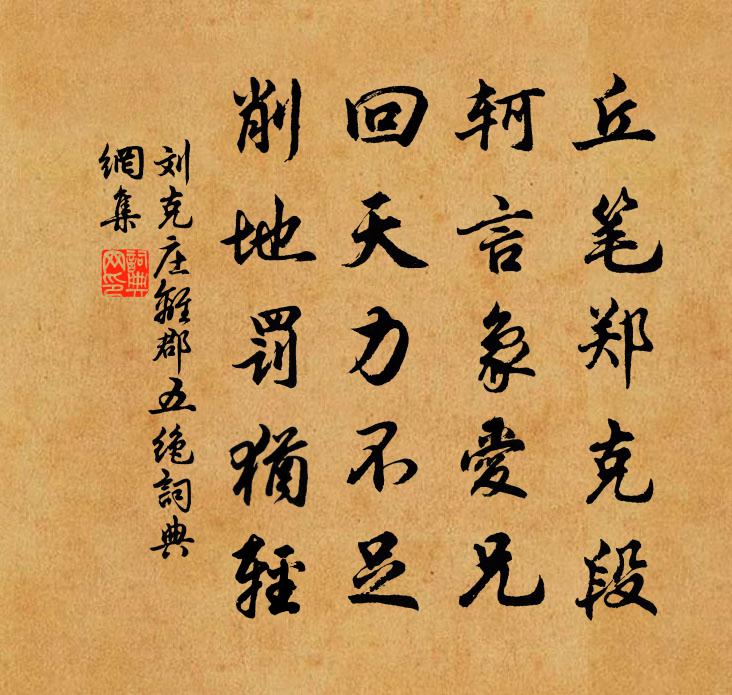 丘笔郑克段
轲言象爱兄
回天力不足
削地罚犹轻
刘克庄杂郡五绝词典
網集
詞典
网印